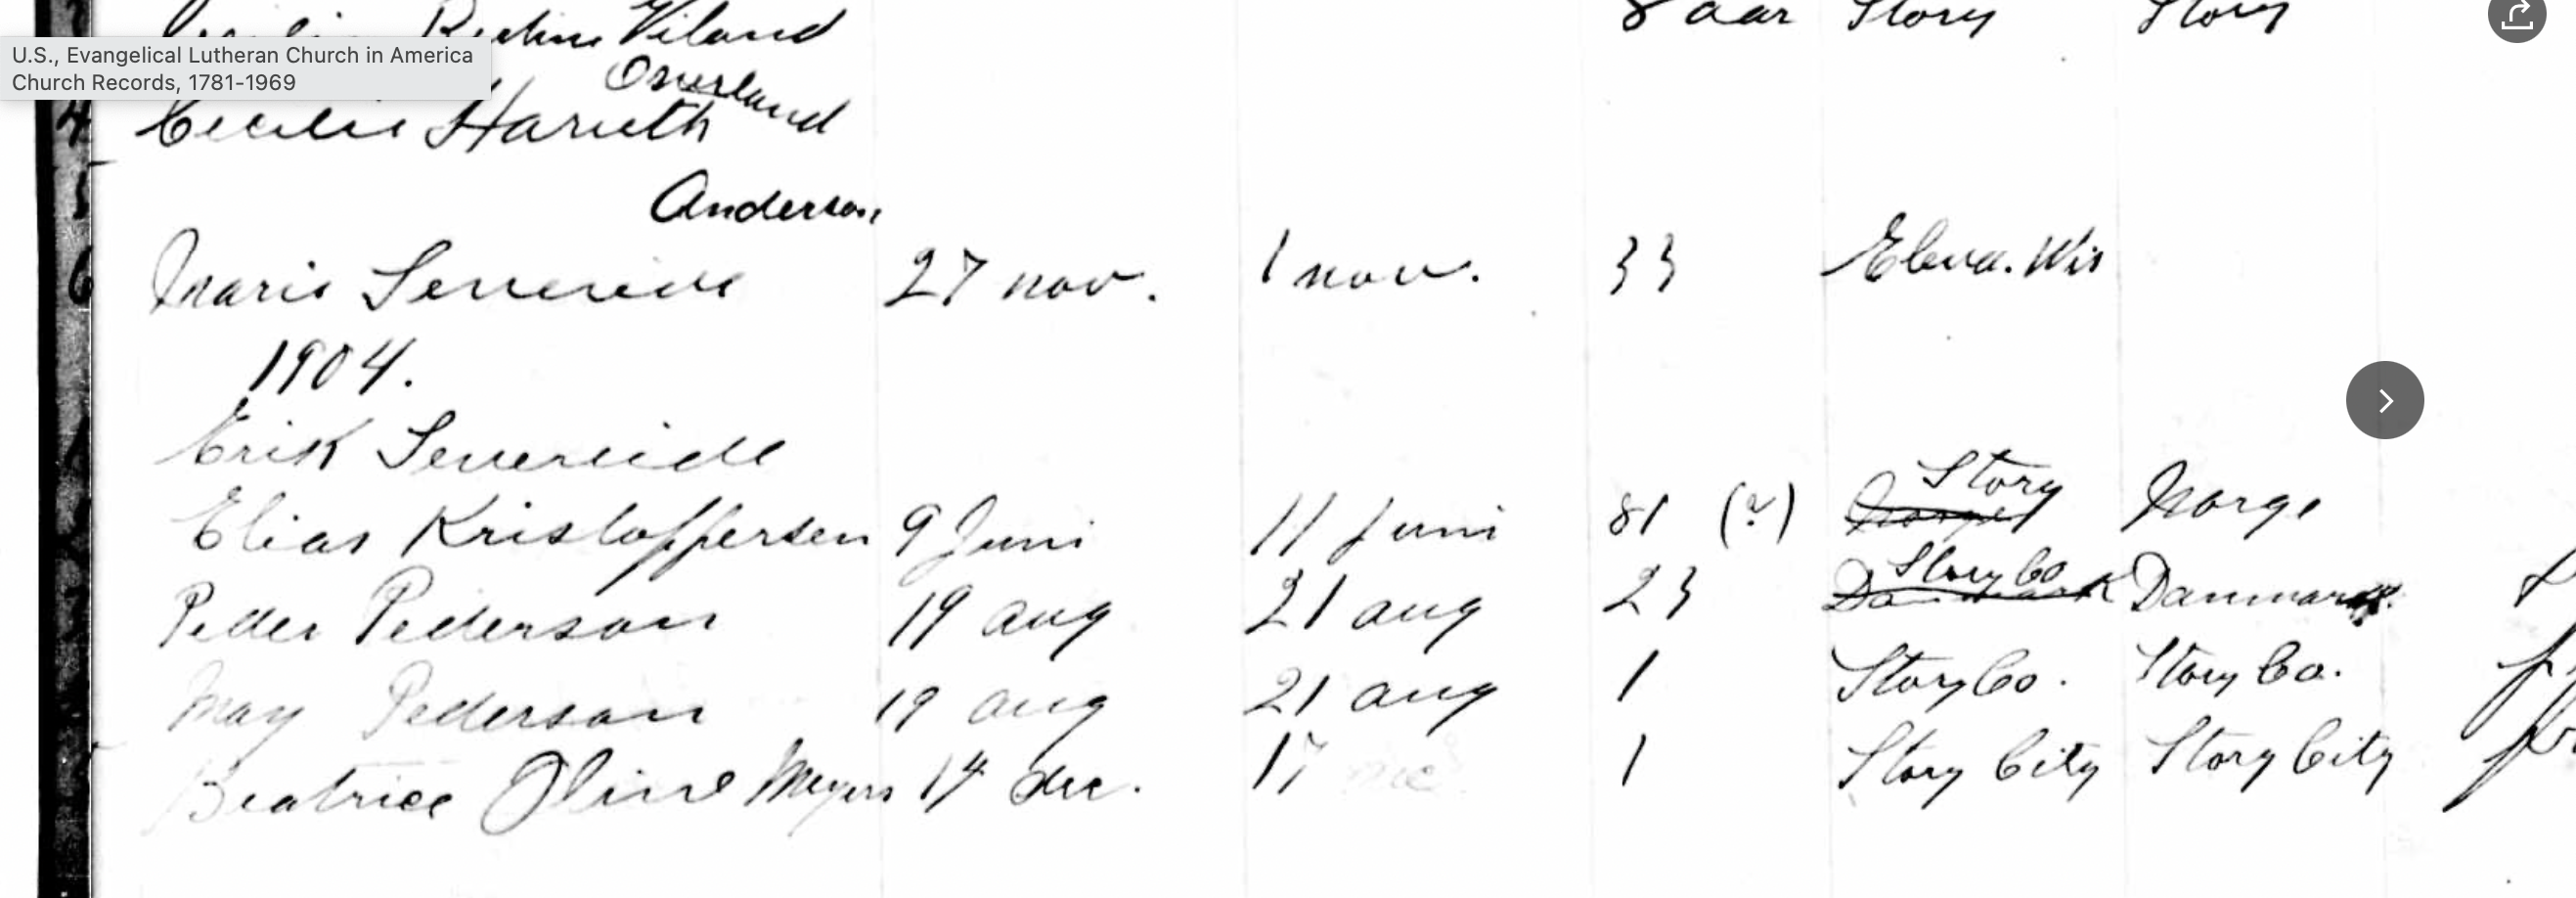 Rectine Viland 8 aar Story Story
U.S., Evangelical Lutheran Church in America
Church Records, 1781-1969
Overland
4 Cecilie Harieth
5
Anderson
6 Marie Severeide 27 nov. 1 nov. 33 Eleva. Wis
1904.
Erik Severeide
Story
Elias Kristoffersen 9 Juni 11 Juni 81 (?) Norge Norge
Story Co
Peder Pederson 19 aug 21 aug 23 Danmark Danmark
May Pederson 19 aug 21 aug 1 Story Co. Story Co.
Beatrice Oline Meyers 14 dec. 17 dec 1 Story City Story City